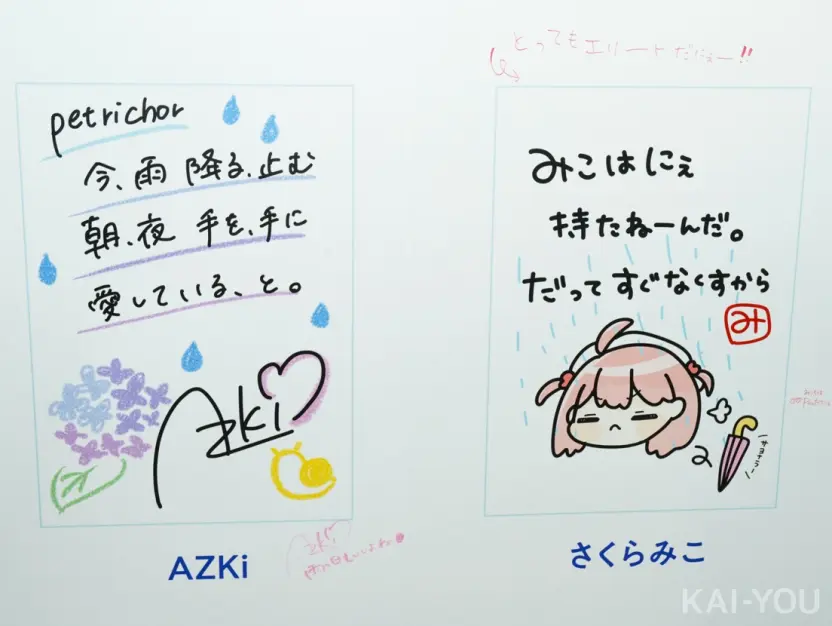 petrichor
今、雨 降る、止む
朝、夜 手を、手に
愛している、と。
AZKi
AZKi
AZKi
とってもエリートだにぇー!!
みこはにぇ
持たねーんだ。
だって すぐなくすから
み
サヨナラ
さくらみこ
KAI-YOU